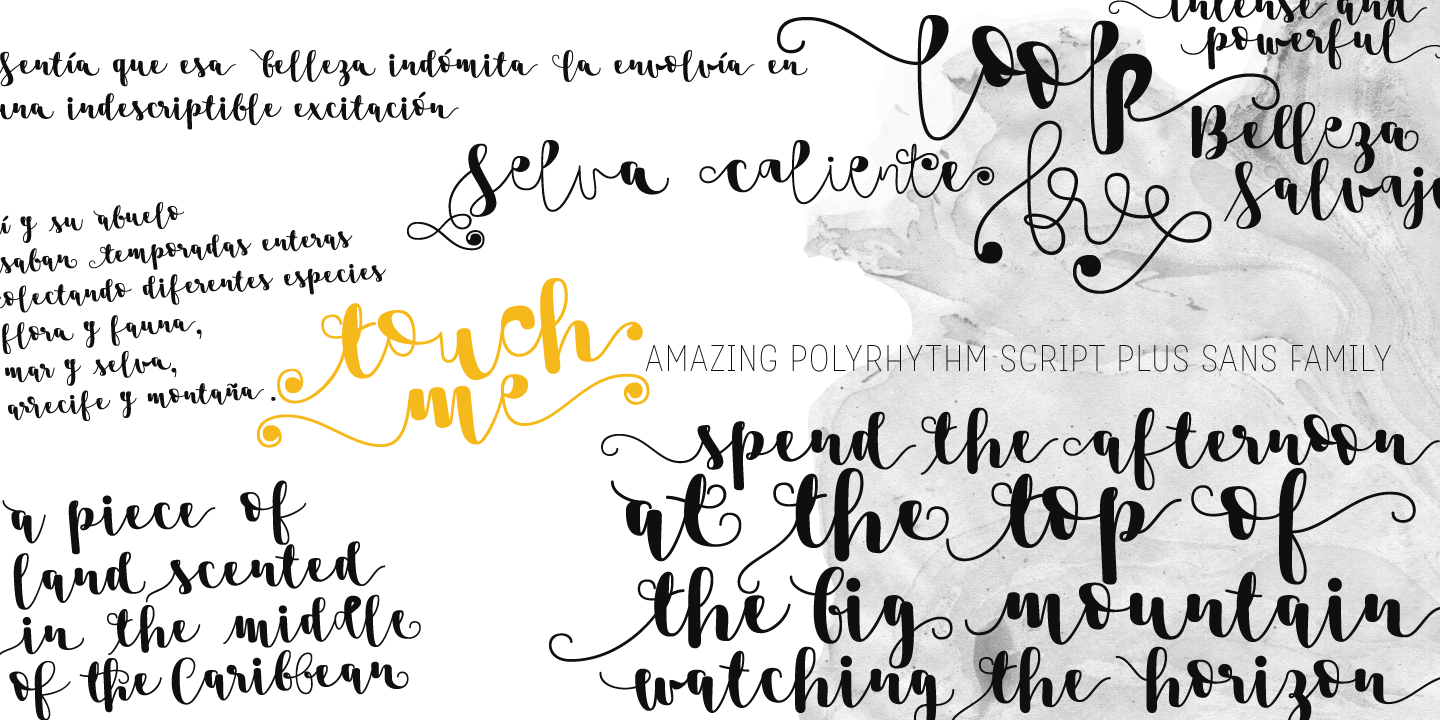 sentía que esa belleza indómita la envolvía en
una indescriptible excitación
loop
bye
intense and
powerful
Belleza
Salvaje
selva caliente
í y su abuelo
saban temporadas enteras
colectando diferentes especies
flora y fauna,
mar y selva,
arrecife y montaña.
touch
me
AMAZING POLYRHYTHM SCRIPT PLUS SANS FAMILY
spend the afternoon
at the top of
the big mountain
watching the horizon
a piece of
land scented
in the middle
of the Caribbean